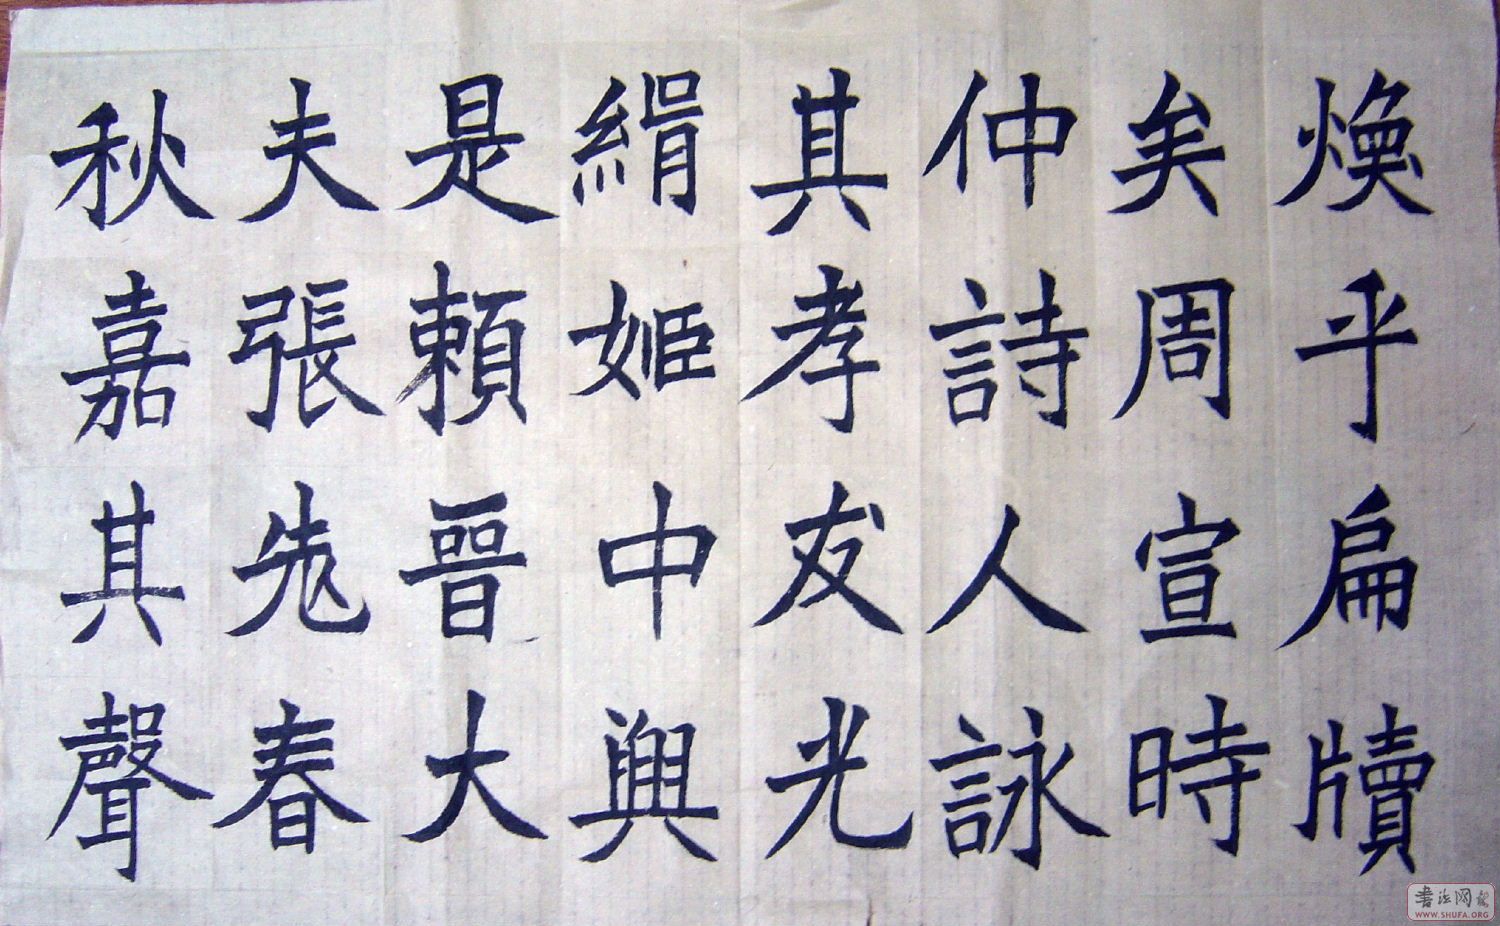 煥乎扁牘
矣周宣時
仲詩人詠
其孝友光
絹姬中興
是賴晉大
夫張老春
秋嘉其聲
書法网
WWW.SHUFA.ORG